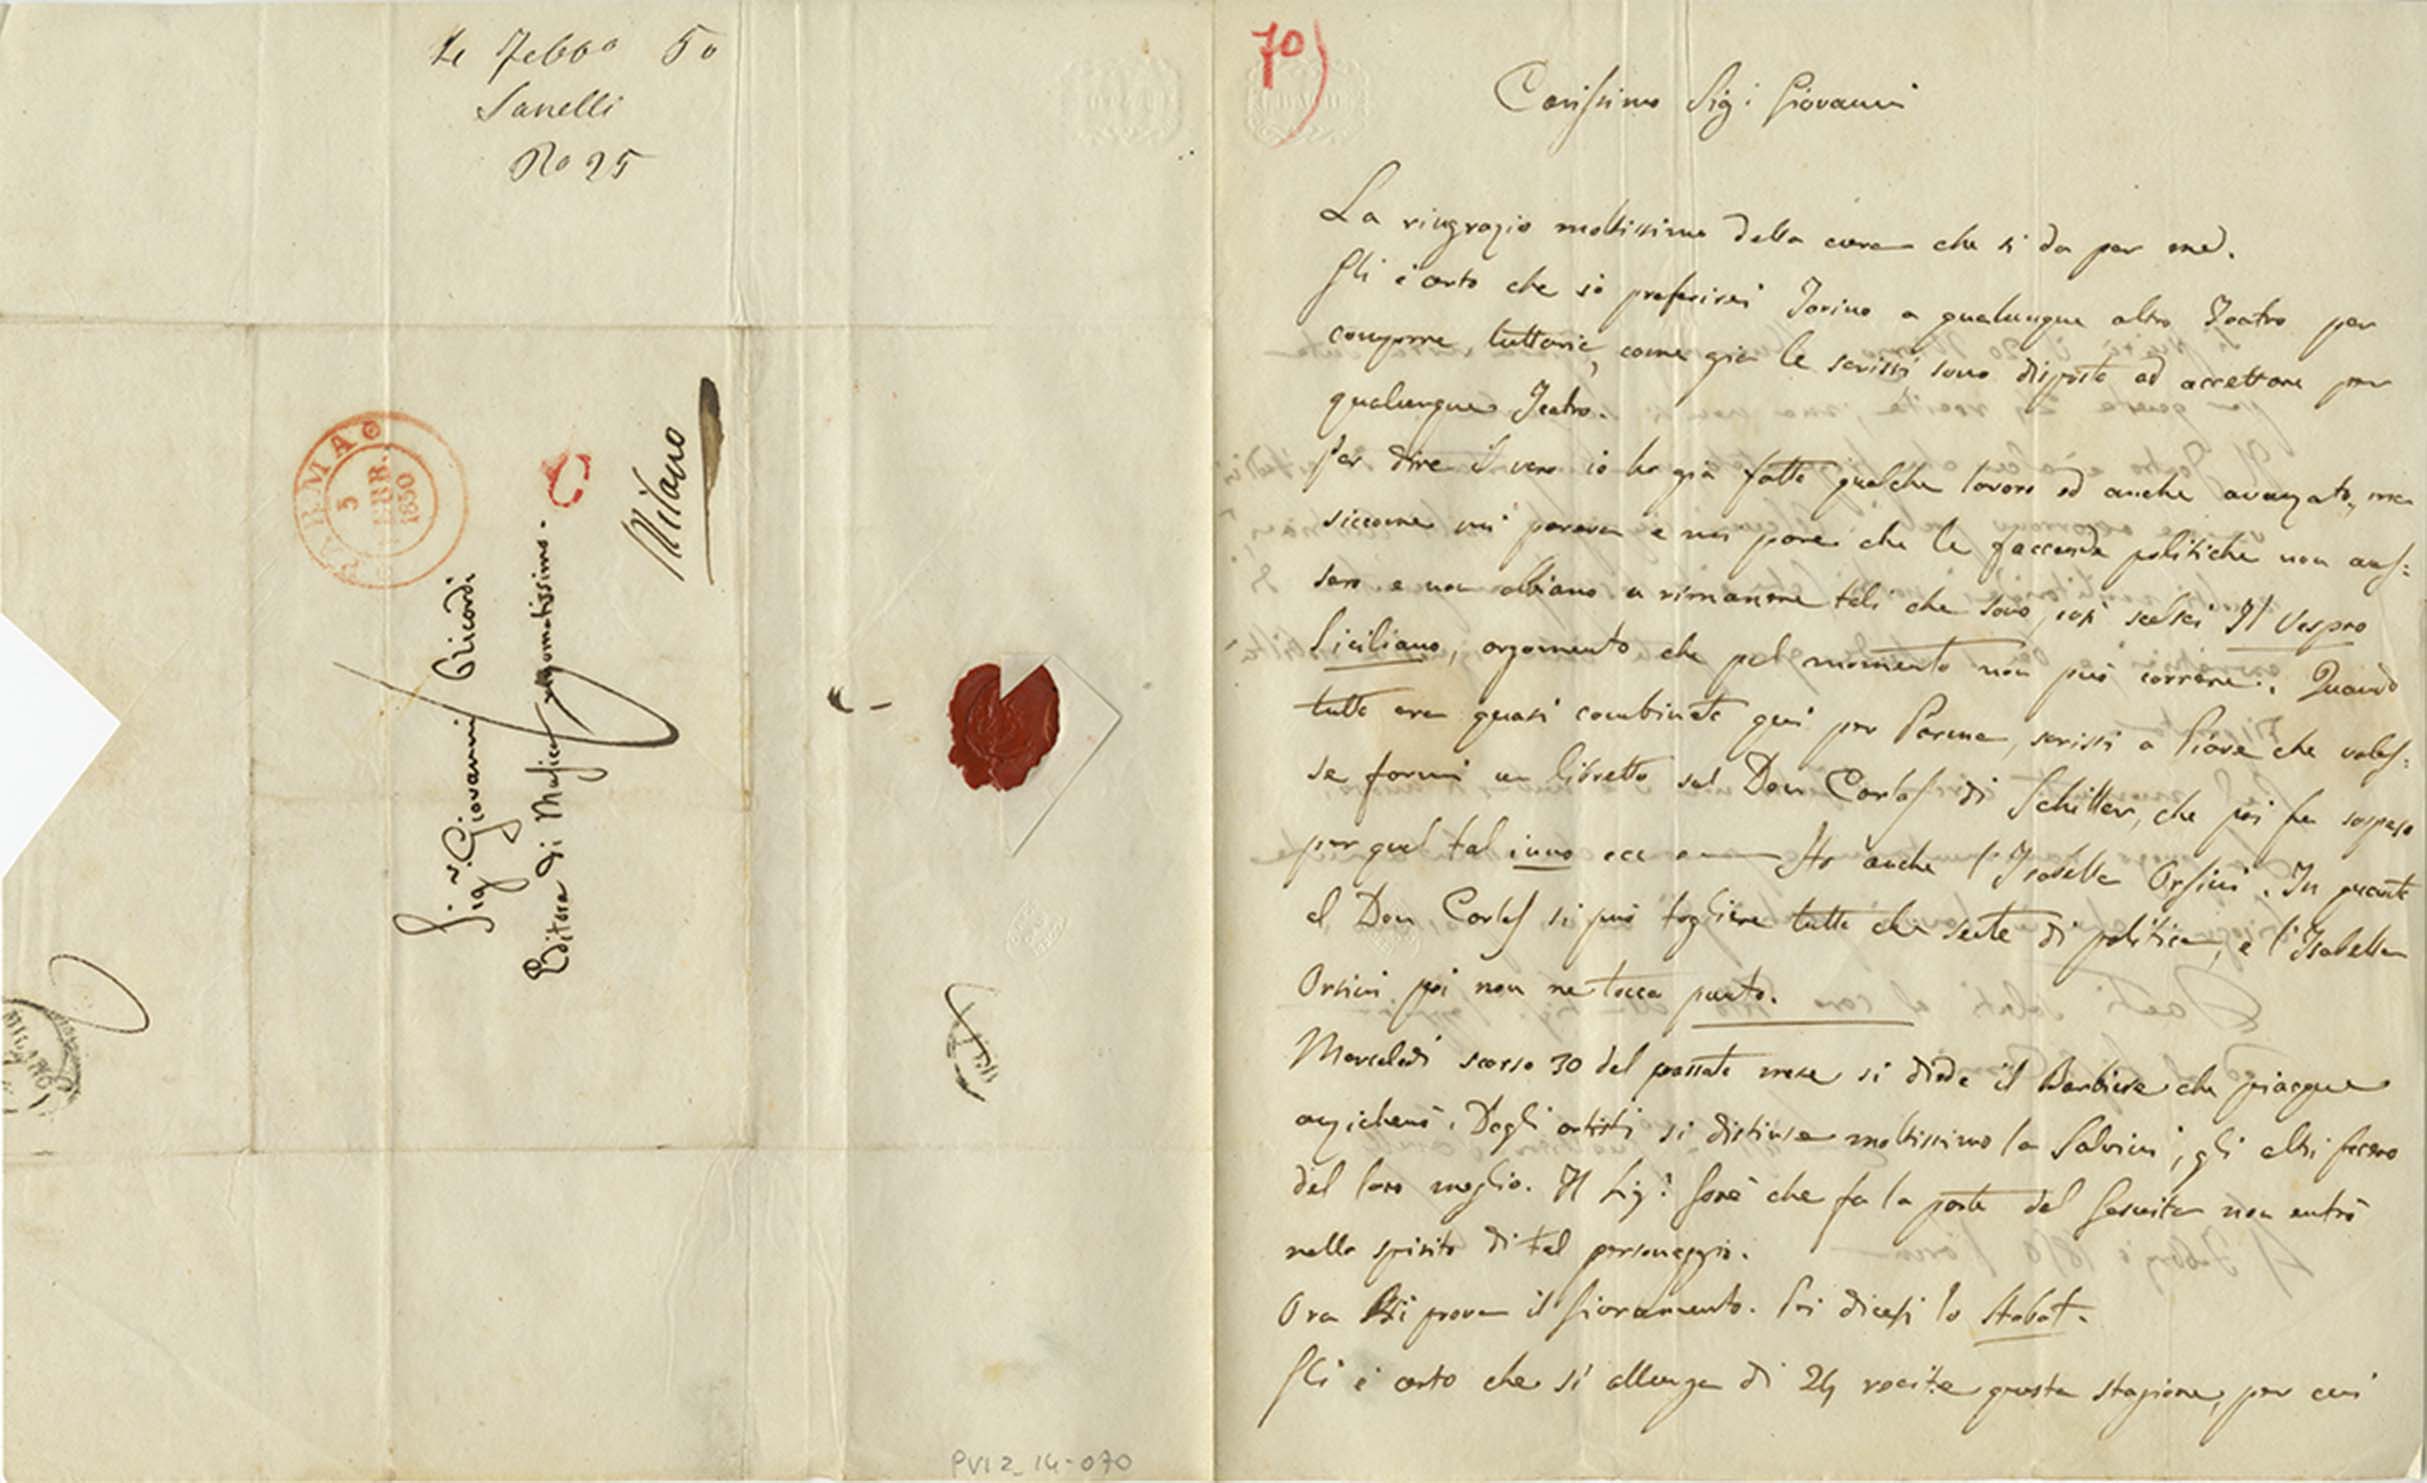 4 Febbo 50
Sanelli
Ro 25
PARMA
5
FEBBR.
1850
Sigr. Giovanni Ricordi
Editore di Musica rinomatissimo.
Milano
MILANO
70)
Carissimo Sigr Giovanni
La ringrazio moltissimo della cura che si da per me.
Gli è certo che io preferirei Torino a qualunque altro Teatro per
comporre tuttavia, come già le scrissi, sono disposto ad accettare per
qualunque Teatro.
Per dire il vero io ho già fatto qualche lavoro ed anche avanzato, ma
siccome mi pareva e mi pare che le faccende politiche non
e non abbiano a rimanere tali che sono, così scelsi Il Vespro
Siciliano, argomento che pel momento non può correre. Quando
tutto era quasi combinato qui per Parma, scrissi a Piave che voles:
se farmi un libretto sul Don Carlos di Schiller, che poi fu sospeso
per quel tal inno ecc Ho anche l'Isabella Orsini. In quanto
al Don Carlos si può togliere tutto che sente di politica, e l'Isabella
Orsini poi non ne tocca punto.
Mercoledì scorso 30 del passato mese si diede il Barbiere che piacque
anzichenò. Degli artisti si distinse moltissimo la Salvini, gli altri fecero
del loro meglio. Il Sigr. Gorè che fa la parte del Gesuita non entrò
nello spirito di tal personaggio.
Ora si prova il Giuramento. Poi dicesi lo Stabat.
Gli è certo che si allunga di 24 recite questa stagione, per cui
PVI 2_14-070